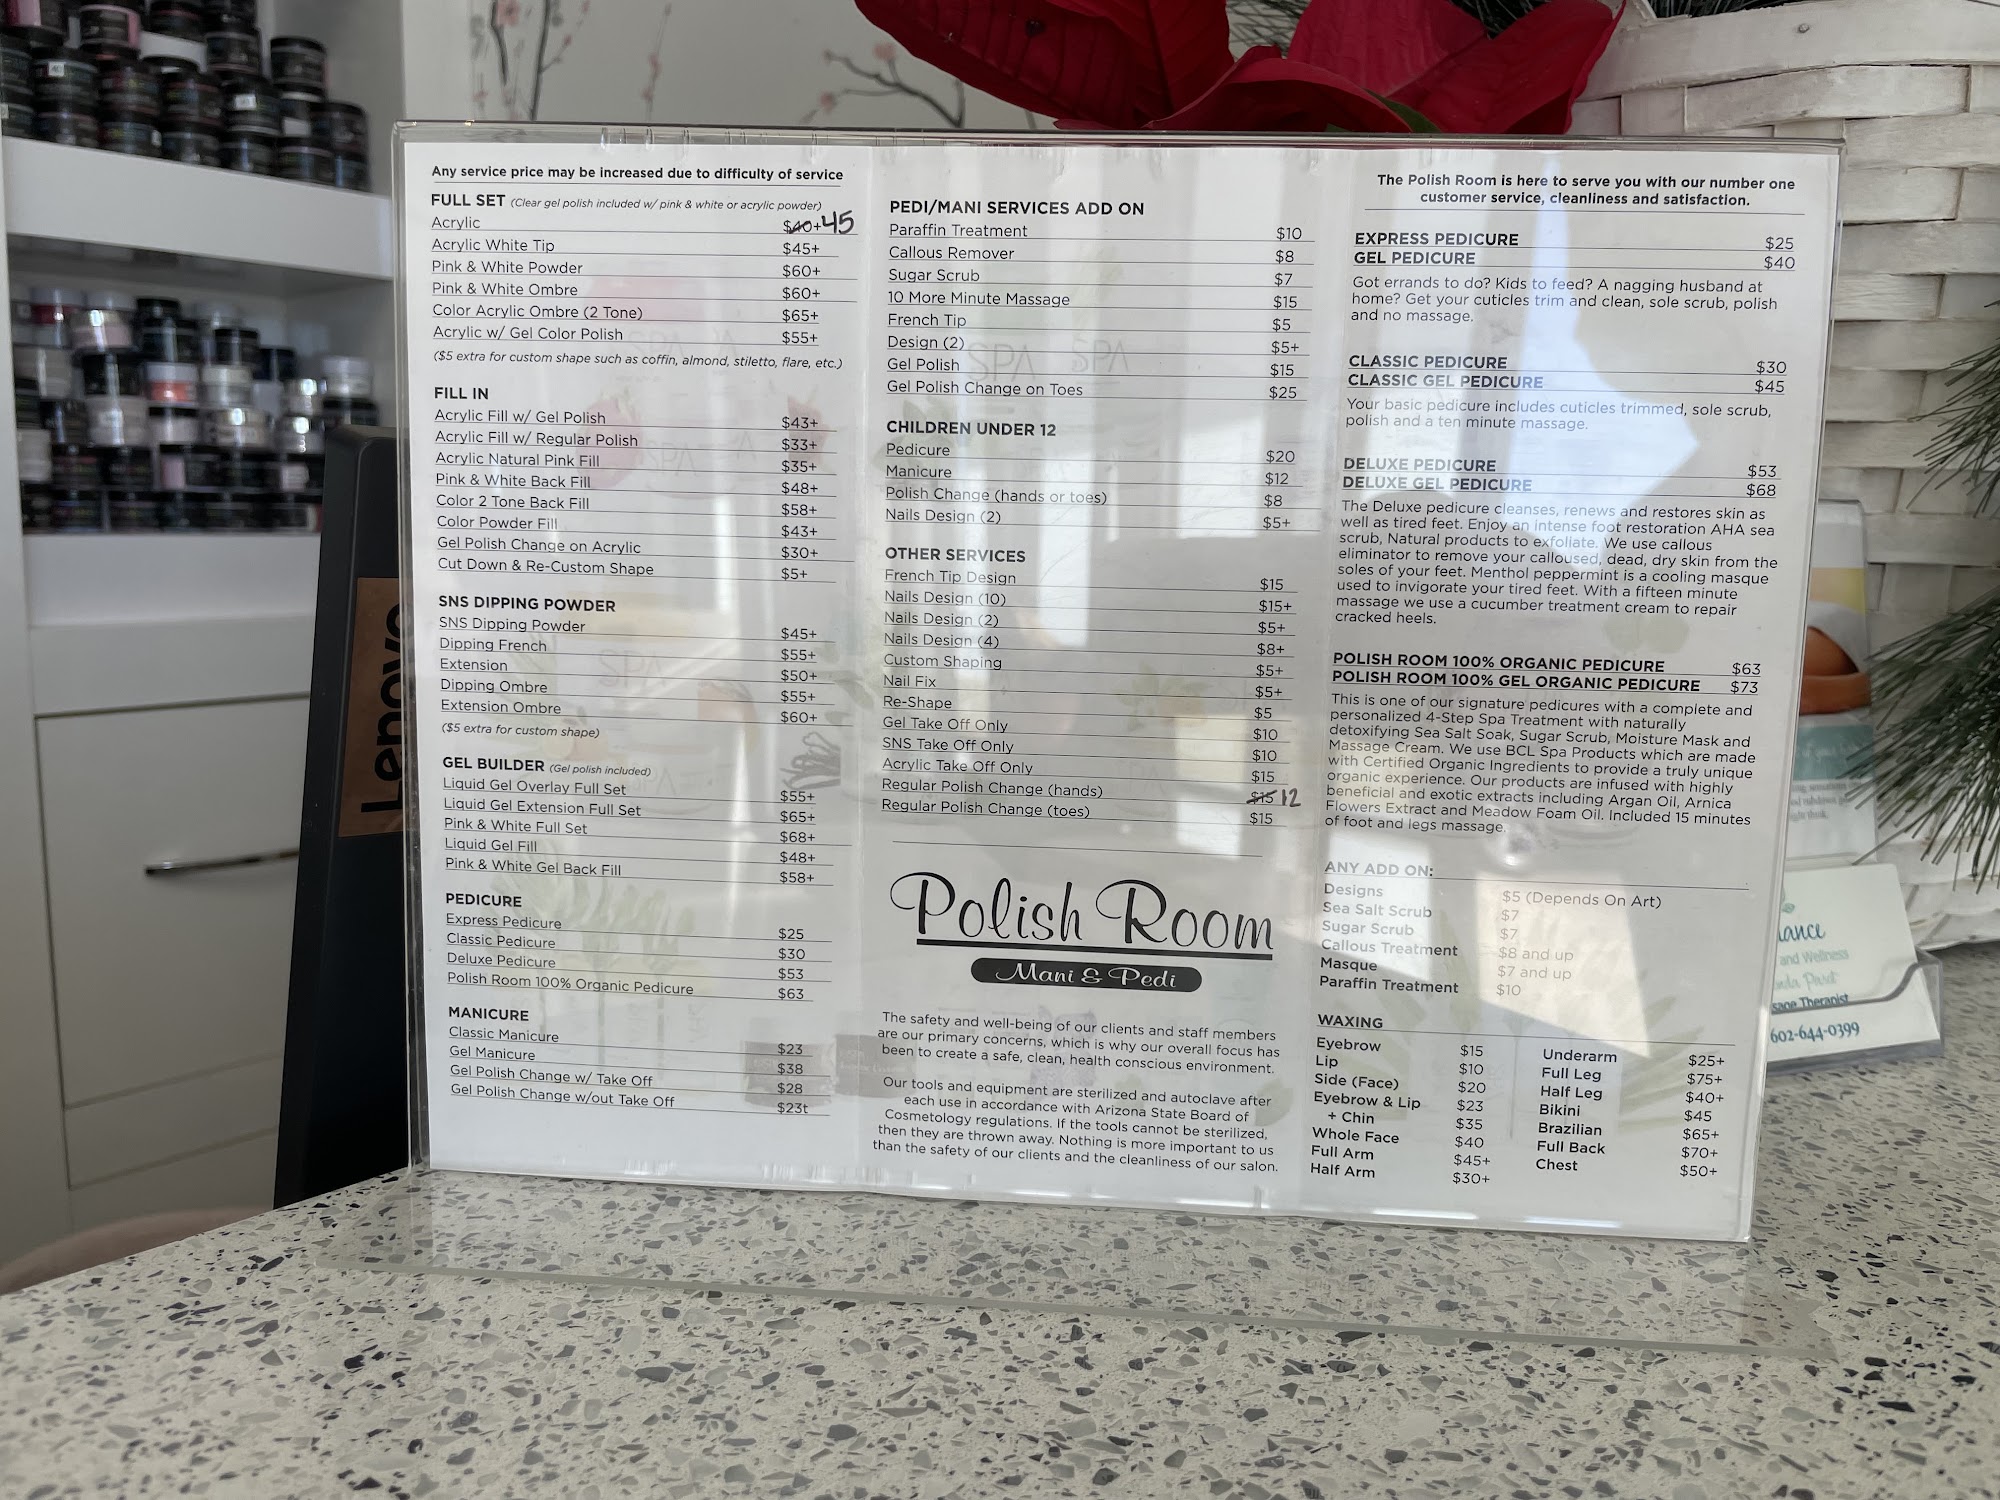 Any service price may be increased due to difficulty of service
FULL SET (Clear gel polish included w/ pink & white or acrylic powder)
Acrylic $40+ 45
Acrylic White Tip $45+
Pink & White Powder $60+
Pink & White Ombre $60+
Color Acrylic Ombre (2 Tone) $65+
Acrylic w/ Gel Color Polish $55+
($5 extra for custom shape such as coffin, almond, stiletto, flare, etc.)
FILL IN
Acrylic Fill w/ Gel Polish $43+
Acrylic Fill w/ Regular Polish $33+
Acrylic Natural Pink Fill $35+
Pink & White Back Fill $48+
Color 2 Tone Back Fill $58+
Color Powder Fill $43+
Gel Polish Change on Acrylic $30+
Cut Down & Re-Custom Shape $5+
SNS DIPPING POWDER
SNS Dipping Powder $45+
Dipping French $55+
Extension $50+
Dipping Ombre $55+
Extension Ombre $60+
($5 extra for custom shape)
GEL BUILDER (Gel polish included)
Liquid Gel Overlay Full Set $55+
Liquid Gel Extension Full Set $65+
Pink & White Full Set $68+
Liquid Gel Fill $48+
Pink & White Gel Back Fill $58+
PEDICURE
Express Pedicure $25
Classic Pedicure $30
Deluxe Pedicure $53
Polish Room 100% Organic Pedicure $63
MANICURE
Classic Manicure $23
Gel Manicure $38
Gel Polish Change w/ Take Off $28
Gel Polish Change w/out Take Off $23t
PEDI/MANI SERVICES ADD ON
Paraffin Treatment $10
Callous Remover $8
Sugar Scrub $7
10 More Minute Massage $15
French Tip $5
Design (2) $5+
Gel Polish $15
Gel Polish Change on Toes $25
CHILDREN UNDER 12
Pedicure $20
Manicure $12
Polish Change (hands or toes) $8
Nails Design (2) $5+
OTHER SERVICES
French Tip Design $15
Nails Design (10) $15+
Nails Design (2) $5+
Nails Design (4) $8+
Custom Shaping $5+
Nail Fix $5+
Re-Shape $5
Gel Take Off Only $10
SNS Take Off Only $10
Acrylic Take Off Only $15
Regular Polish Change (hands) $15 12
Regular Polish Change (toes) $15
Polish Room
Mani & Pedi
The safety and well-being of our clients and staff members
are our primary concerns, which is why our overall focus has
been to create a safe, clean, health conscious environment.
Our tools and equipment are sterilized and autoclave after
each use in accordance with Arizona State Board of
Cosmetology regulations. If the tools cannot be sterilized,
then they are thrown away. Nothing is more important to us
than the safety of our clients and the cleanliness of our salon.
The Polish Room is here to serve you with our number one
customer service, cleanliness and satisfaction.
EXPRESS PEDICURE $25
GEL PEDICURE $40
Got errands to do? Kids to feed? A nagging husband at
home? Get your cuticles trim and clean, sole scrub, polish
and no massage.
CLASSIC PEDICURE $30
CLASSIC GEL PEDICURE $45
Your basic pedicure includes cuticles trimmed, sole scrub,
polish and a ten minute massage.
DELUXE PEDICURE $53
DELUXE GEL PEDICURE $68
The Deluxe pedicure cleanses, renews and restores skin as
well as tired feet. Enjoy an intense foot restoration AHA sea
scrub, Natural products to exfoliate. We use callous
eliminator to remove your calloused, dead, dry skin from the
soles of your feet. Menthol peppermint is a cooling masque
used to invigorate your tired feet. With a fifteen minute
massage we use a cucumber treatment cream to repair
cracked heels.
POLISH ROOM 100% ORGANIC PEDICURE $63
POLISH ROOM 100% GEL ORGANIC PEDICURE $73
This is one of our signature pedicures with a complete and
personalized 4-Step Spa Treatment with naturally
detoxifying Sea Salt Soak, Sugar Scrub, Moisture Mask and
Massage Cream. We use BCL Spa Products which are made
with Certified Organic Ingredients to provide a truly unique
organic experience. Our products are infused with highly
beneficial and exotic extracts including Argan Oil, Arnica
Flowers Extract and Meadow Foam Oil. Included 15 minutes
of foot and legs massage.
ANY ADD ON:
Designs $5 (Depends On Art)
Sea Salt Scrub $7
Sugar Scrub $7
Callous Treatment $8 and up
Masque $7 and up
Paraffin Treatment $10
WAXING
Eyebrow $15
Lip $10
Side (Face) $20
Eyebrow & Lip $23
+ Chin $35
Whole Face $40
Full Arm $45+
Half Arm $30+
Underarm $25+
Full Leg $75+
Half Leg $40+
Bikini $45
Brazilian $65+
Full Back $70+
Chest $50+
Lenovo
lance
and Wellness
sage Therapist
602-644-0399